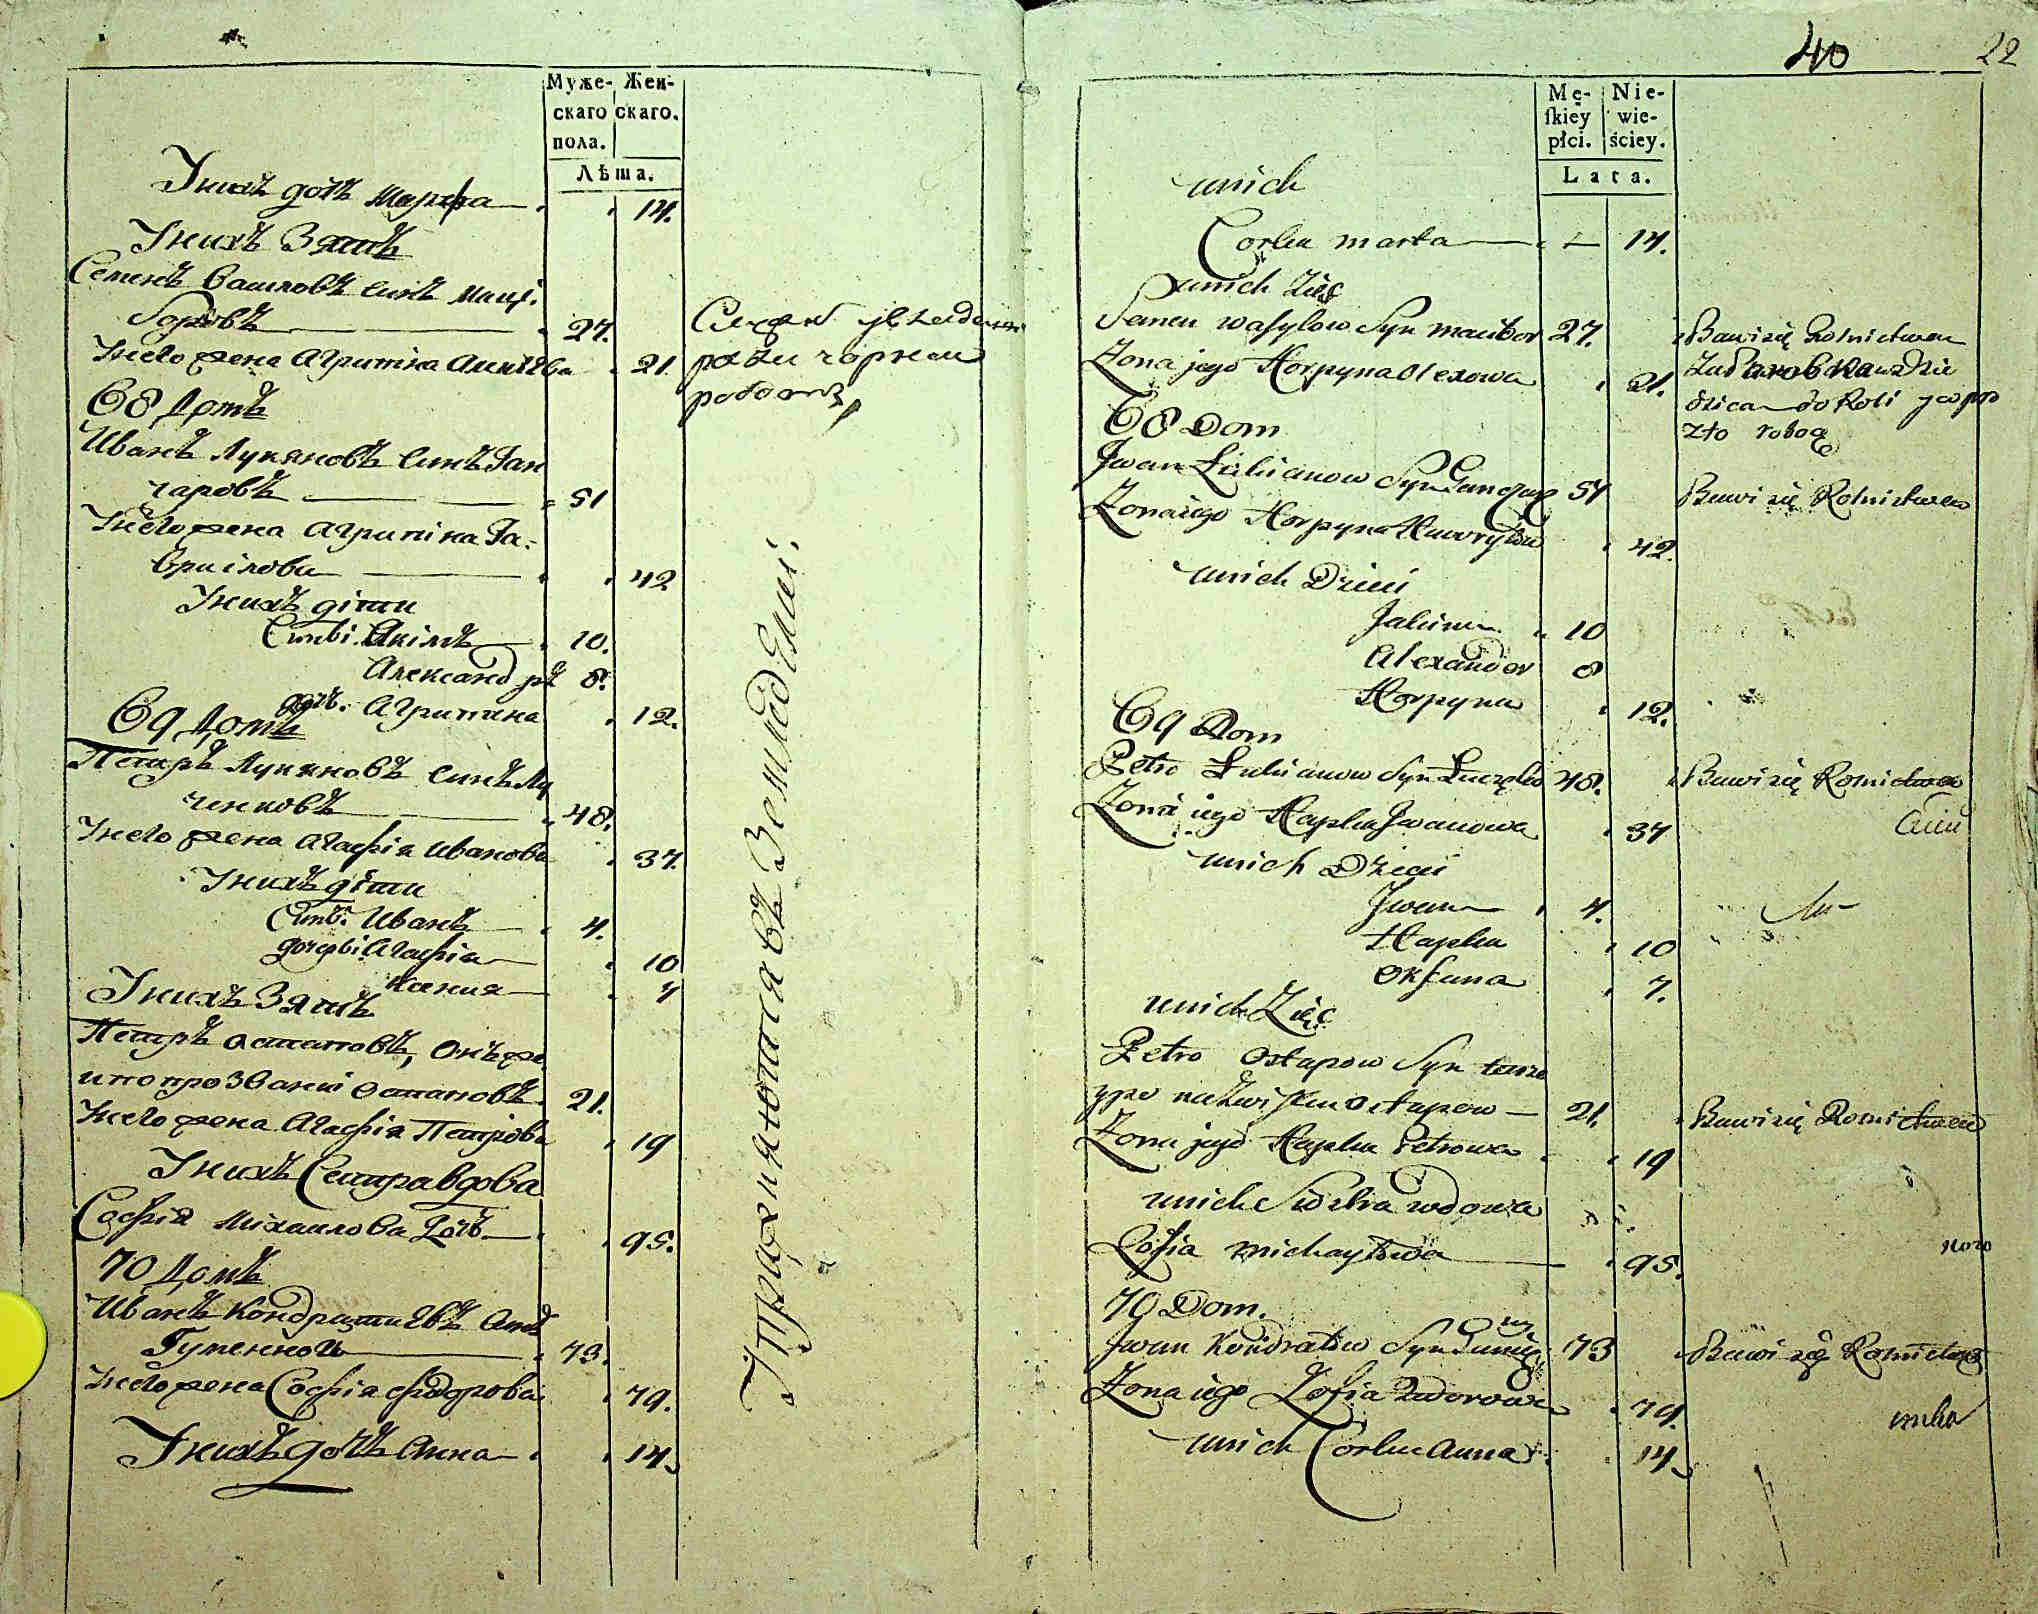 Муже-
скаго
пола.
Жен-
скаго.
Лѣта.
Унихъ дочь Марфа 14.
Унихъ Зять
Семенъ Василовъ синъ Маці.
боровъ 27.
Унего жена Агрипина Алексѣева 21.
68 Домъ
Иванъ Лукяновъ синъ Ган
чаровъ 51
Унего жена Агрипина Га-
врилова 42
Унихъ діти
Синві. Якімъ 10.
Александръ 8.
дочь. Агрипина 12.
69 Домъ
Петръ Лукяновъ синъ Лу
ченковъ 48.
Унего жена Агафія Иванова 37.
Унихъ діти
Синъ. Иванъ 4.
дочерві Агафія 10
Ксения 7
Унихъ Зять
Петръ Остаповъ, Онъ же
и по прозванию Остаповъ 21.
Унего жена Агафія Петрова 19
Унихъ Сестра вдова
Софія Михаилова Дочь 95.
70 Домъ
Иванъ Кондратиевъ Синъ
Гуменной 73.
Унего жена Софія Федорова 79.
Унихъ дочь Анна 14.
работі
Упражняются въ Земледелии.
40
22
Mę-
ſkiey
płci.
Nie-
wie-
ściey.
Lata.
unich
Corka marta 14.
unich Zięc
Semen wasylow Syn macibor 27. Bawi się Rolnictwem
Zona jego Horpyna Olexowa 21.
68 Dom
Jwan Łukianow Syn Ganczarz 51 Bawi się Rolnictwem
Zona iego Horpyna Hawryłowa 42.
unich Dzieci
Jakim 10
Alexander 8
Horpyna 12.
69 Dom
Petro Łukianow Syn Łuczenko 48. Bawi się Rolnictwem
Zona iego Hapka Jwanowa 37
unich Dzieci
Jwan 4.
Hapka 10
Okſana 7.
unich Zięc
Petro Ostapow Syn tenze
ypo nazwisku Ostapow 21. Bawi się Rolnictwem
Zona jego Hapka Petrowa 19
unich Siostra wdowa
Zofia michayłowa 95.
70 Dom.
Jwan Kondratiw Syn 73 Bawi się Rolnictwem
Zona iego Zofia Fedorowa 79.
unich Corka Anna 14.